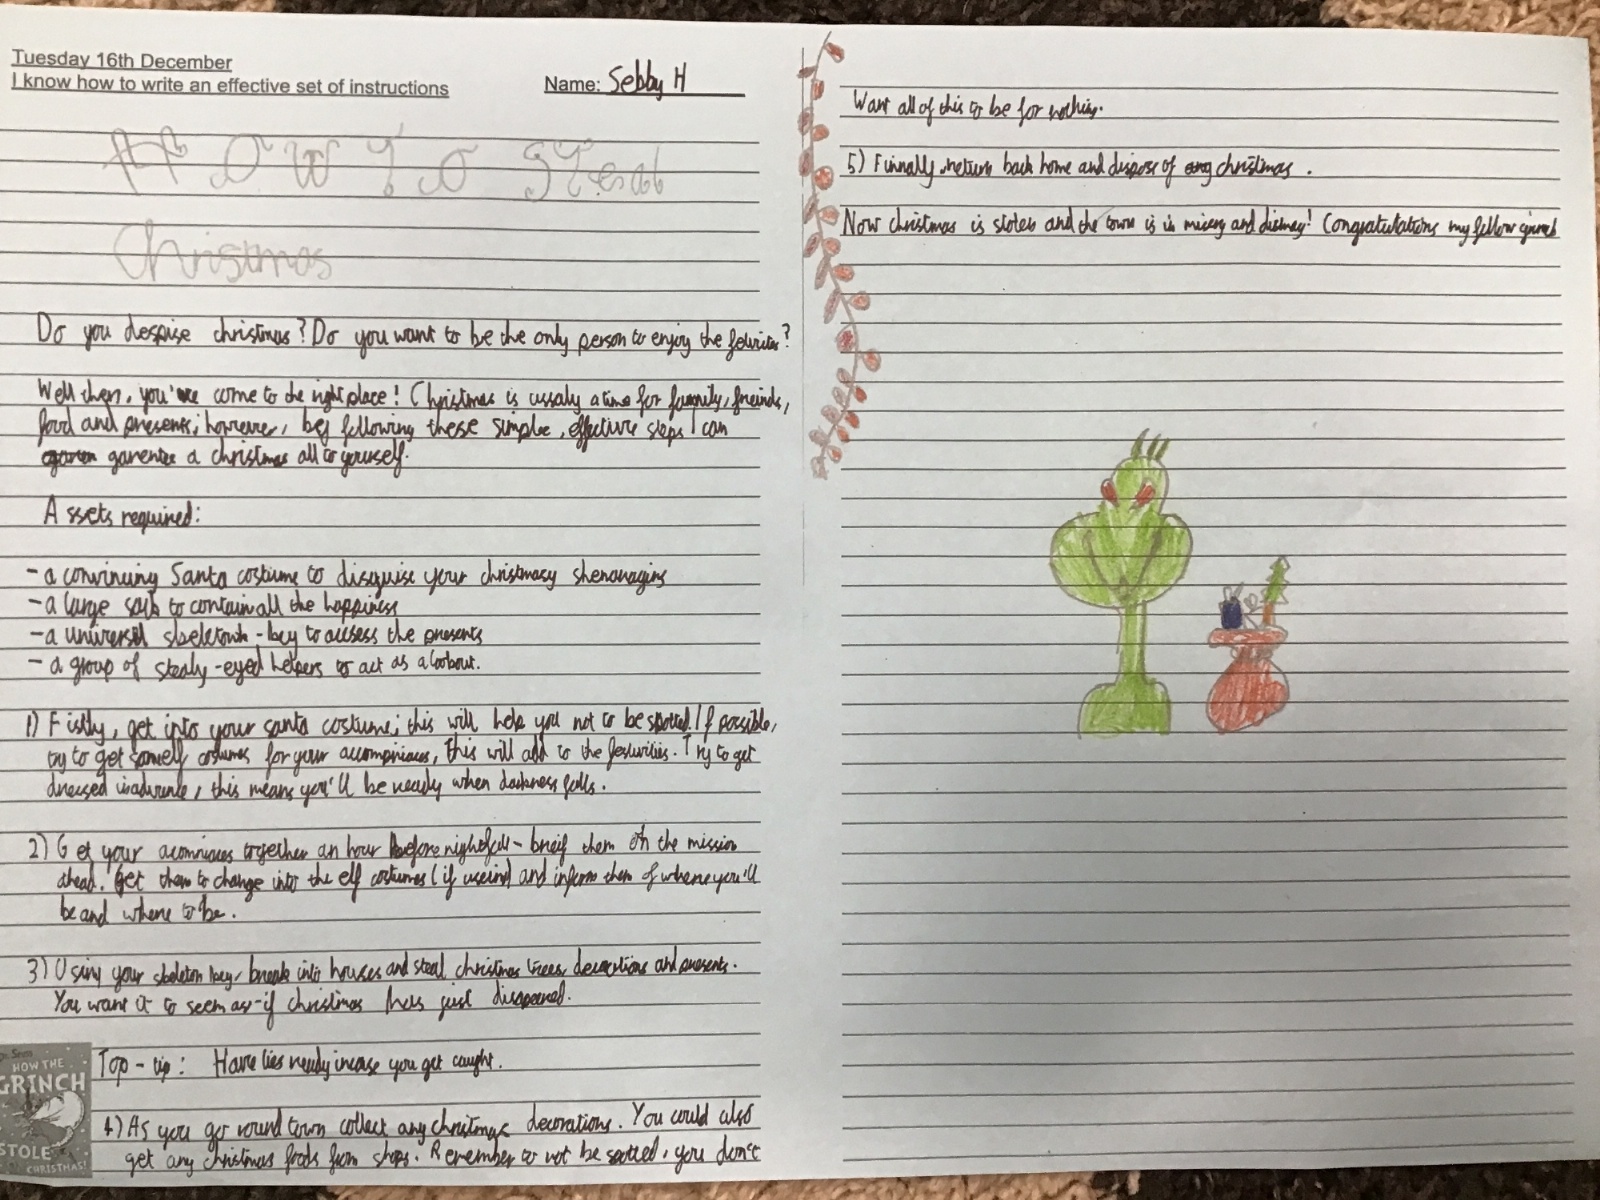 Tuesday 16th December
I know how to write an effective set of instructions
Name: Sebby H
How To STeal
Christmas
Do you despise christmas? Do you want to be the only person to enjoy the
Well then, you've come to the right place! Christmas is ussaly a time for famgily, freinds,
food and presents; however, by following these simple, effective steps I can
garentee a christmas all to yourself.
Assets required:
- a convincing Santa costume to disguise your christmasy shenanagins
- a large sack to contain all the happiness
- a universal skeletown-key to accsess the presents
- a group of stealy-eyed helpers to act as a lookout.
1) Fistly, get into your santa costume; this will help you not to be spotted. If possible,
try to get some elf costumes for your, this will add to the festivities. Try to get
dressed inadvance, this means you'll be ready when darkness falls.
2) Get your together an hour before nightfall - breif them on the mission
ahead. Get them to change into the elf costumes (if useing) and inform them of where you'll
be and where to be.
3) Using your skeleton key, break into houses and steal christmas trees, decorations and presents.
You want it to seem as-if christmas has just
Dr. Seuss
HOW THE
GRINCH
STOLE
CHRISTMAS!
Top-tip: Have lies ready incase you get caught.
4) As you go round town collect any christmas decorations. You could also
get any christmas foods from shops. Remember to not be spotted, you don't
Want all of this to be for nothing.
5) Finnally, return back home and dispose of christmas.
Now christmas is stolen and the town is in misery and dismay! Congratulations my fellow grinch